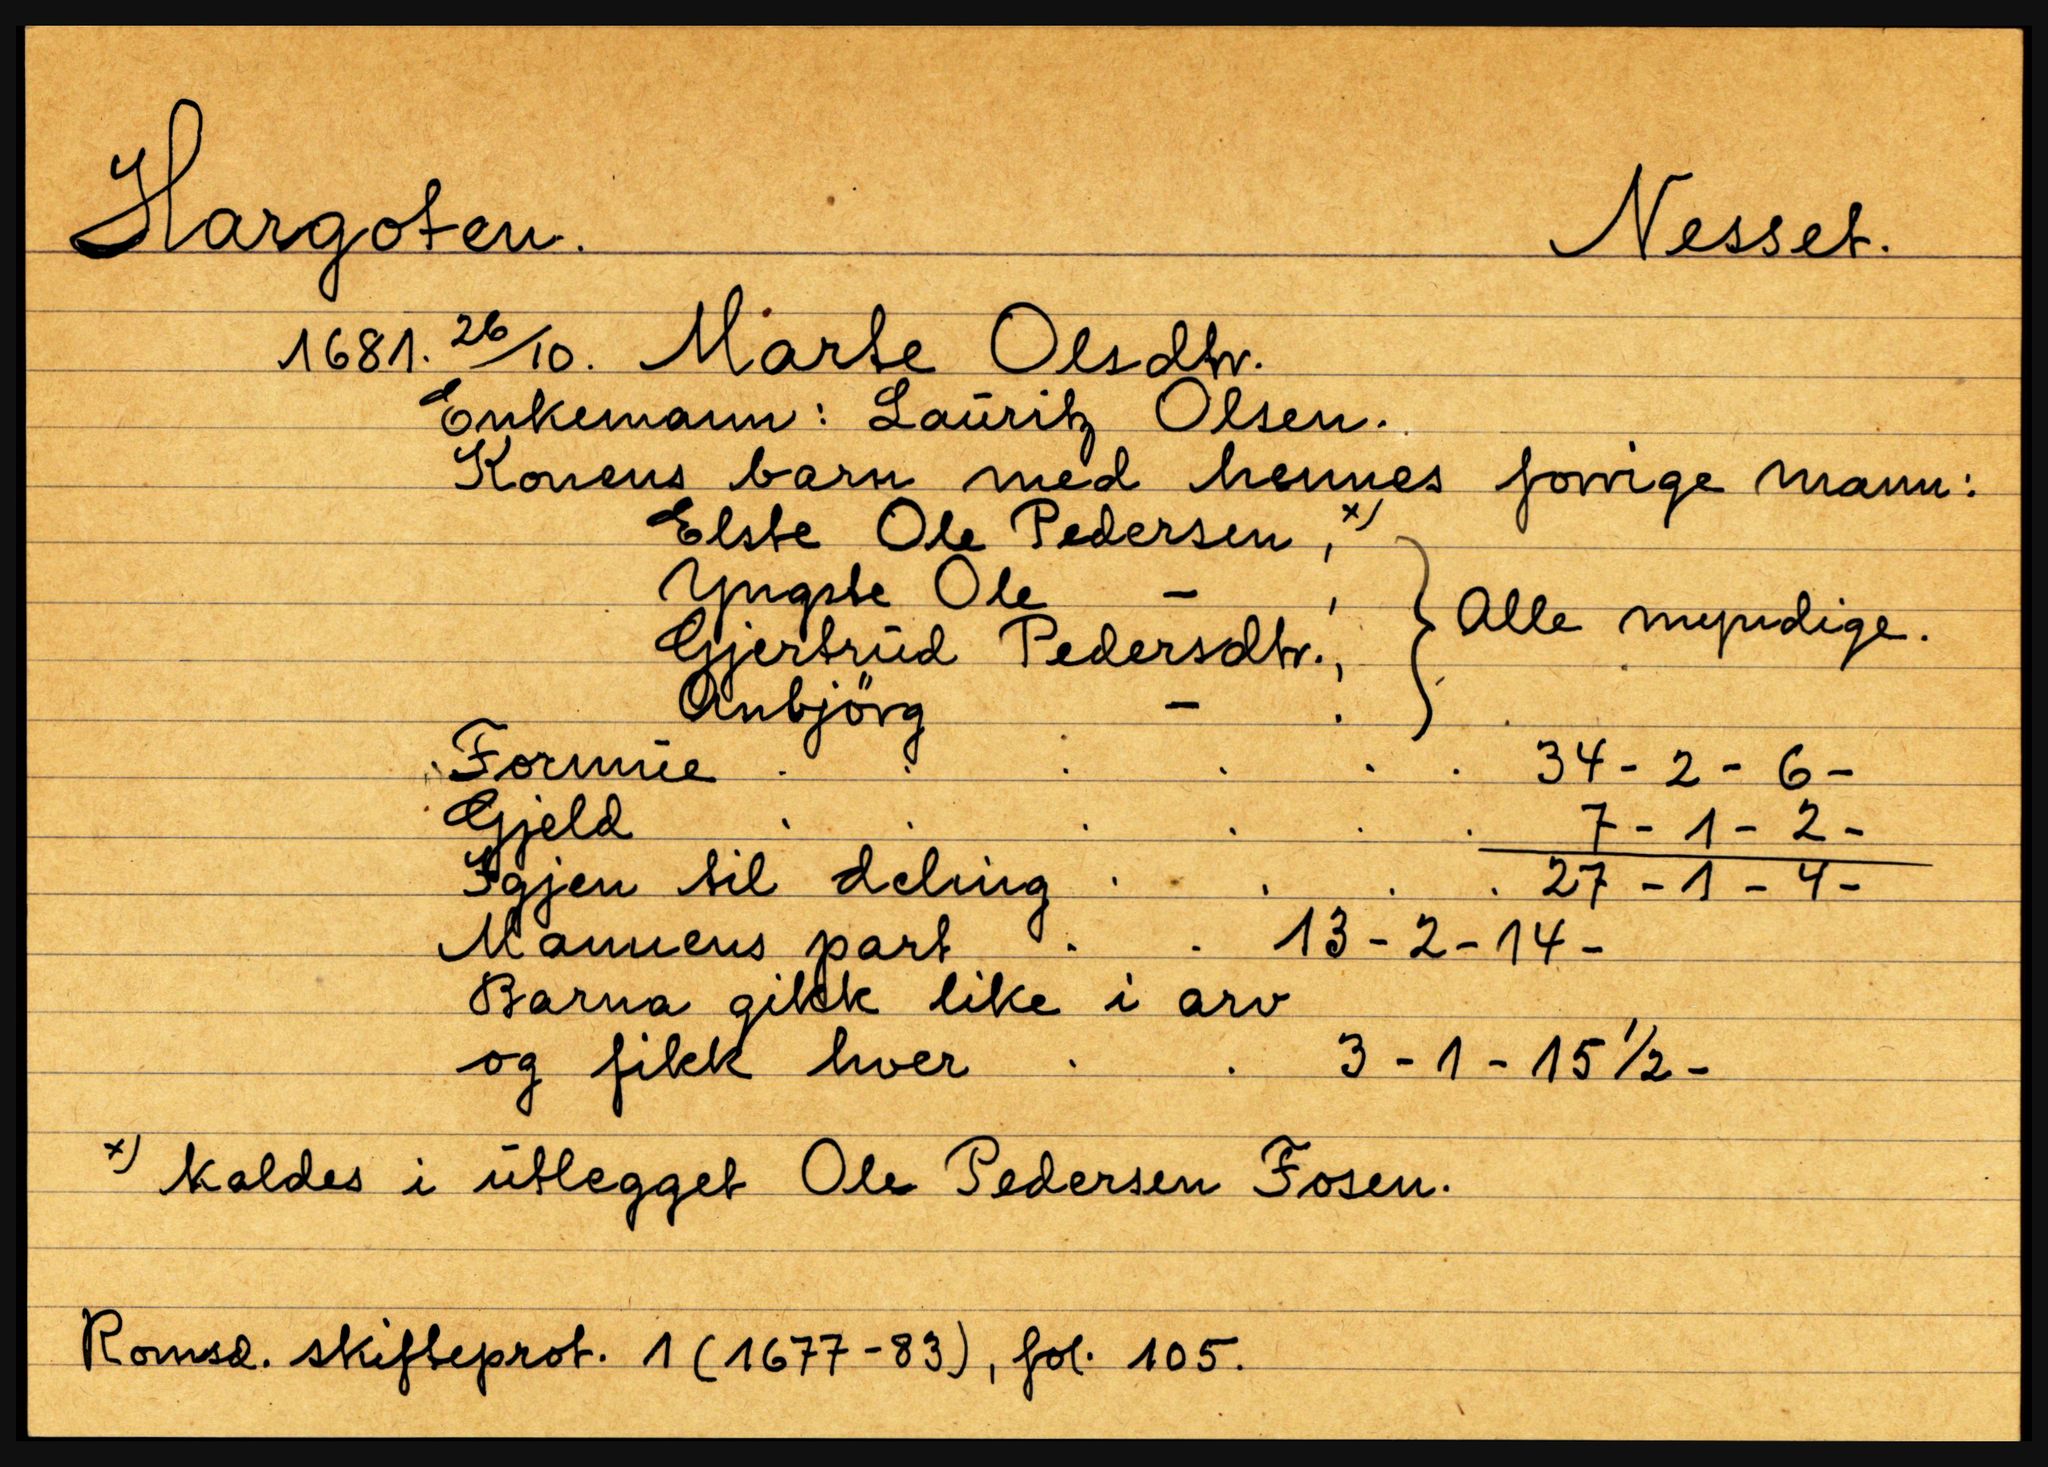 Hargoten. Nesset.
1681. 26/10. Marte Olsdtr.
Enkemann: Lauritz Olsen.
Konens barn med hennes forrige mann:
Elste Ole Pedersen, x)
Yngste Ole - ,
Gjertrud Pedersdtr.,
Anbjörg - .
Alle myndige.
Formue . . . . . . 34 - 2 - 6 -
Gjeld . . . . . . 7 - 1 - 2 -
Igjen til deling . . . . 27 - 1 - 4 -
Mannens part . . 13 - 2 - 14 -
Barna gikk like i arv
og fikk hver . . 3 - 1 - 15 1/2 -
x) kaldes i utlegget Ole Pedersen Fosen.
Romsd. skifteprot. 1 (1677-83), fol. 105.